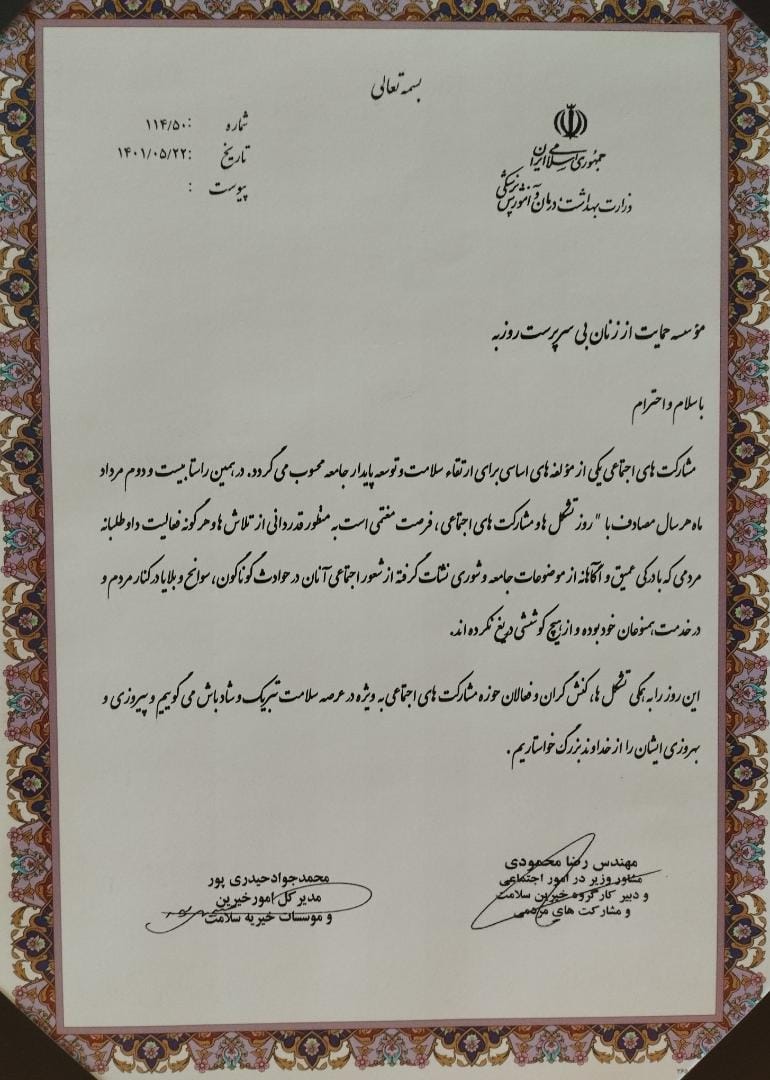 بسمه تعالی
شماره :۱۱۴/۵۰
تاریخ :۱۴۰۱/۰۵/۲۲
پیوست :
جمهوری اسلامی ایران
وزارت بهداشت، درمان و آموزش پزشکی
مؤسسه حمایت از زنان بی سرپرست روزبه
با سلام و احترام
مشارکت های اجتماعی یکی از مؤلفه های اساسی برای ارتقاء سلامت و توسعه پایدار جامعه محسوب می گردد. در همین راستا بیست و دوم مرداد
ماه هر سال مصادف با " روز تشکل ها و مشارکت های اجتماعی ، فرصت مغتنمی است به منظور قدردانی از تلاش ها و هر گونه فعالیت داوطلبانه
مردمی که با درکی عمیق و آگاهانه از موضوعات جامعه و شوری نشات گرفته از شعور اجتماعی آنان در حوادث گوناگون، سوانح و بلایا در کنار مردم و
در خدمت همنوعان خود بوده و از هیچ کوششی دریغ نکرده اند.
این روز را به همگی تشکل ها، کنش گران و فعالان حوزه مشارکت های اجتماعی به ویژه در عرصه سلامت تبریک و شادباش می گوییم و پیروزی و
بهروزی ایشان را از خداوند بزرگ خواستاریم .
مهندس رضا محمودی
مشاور وزیر در امور اجتماعی
و دبیر کارگروه خیرین سلامت
و مشارکت های مردمی
محمدجواد حیدری پور
مدیر کل امور خیرین
و موسسات خیریه سلامت